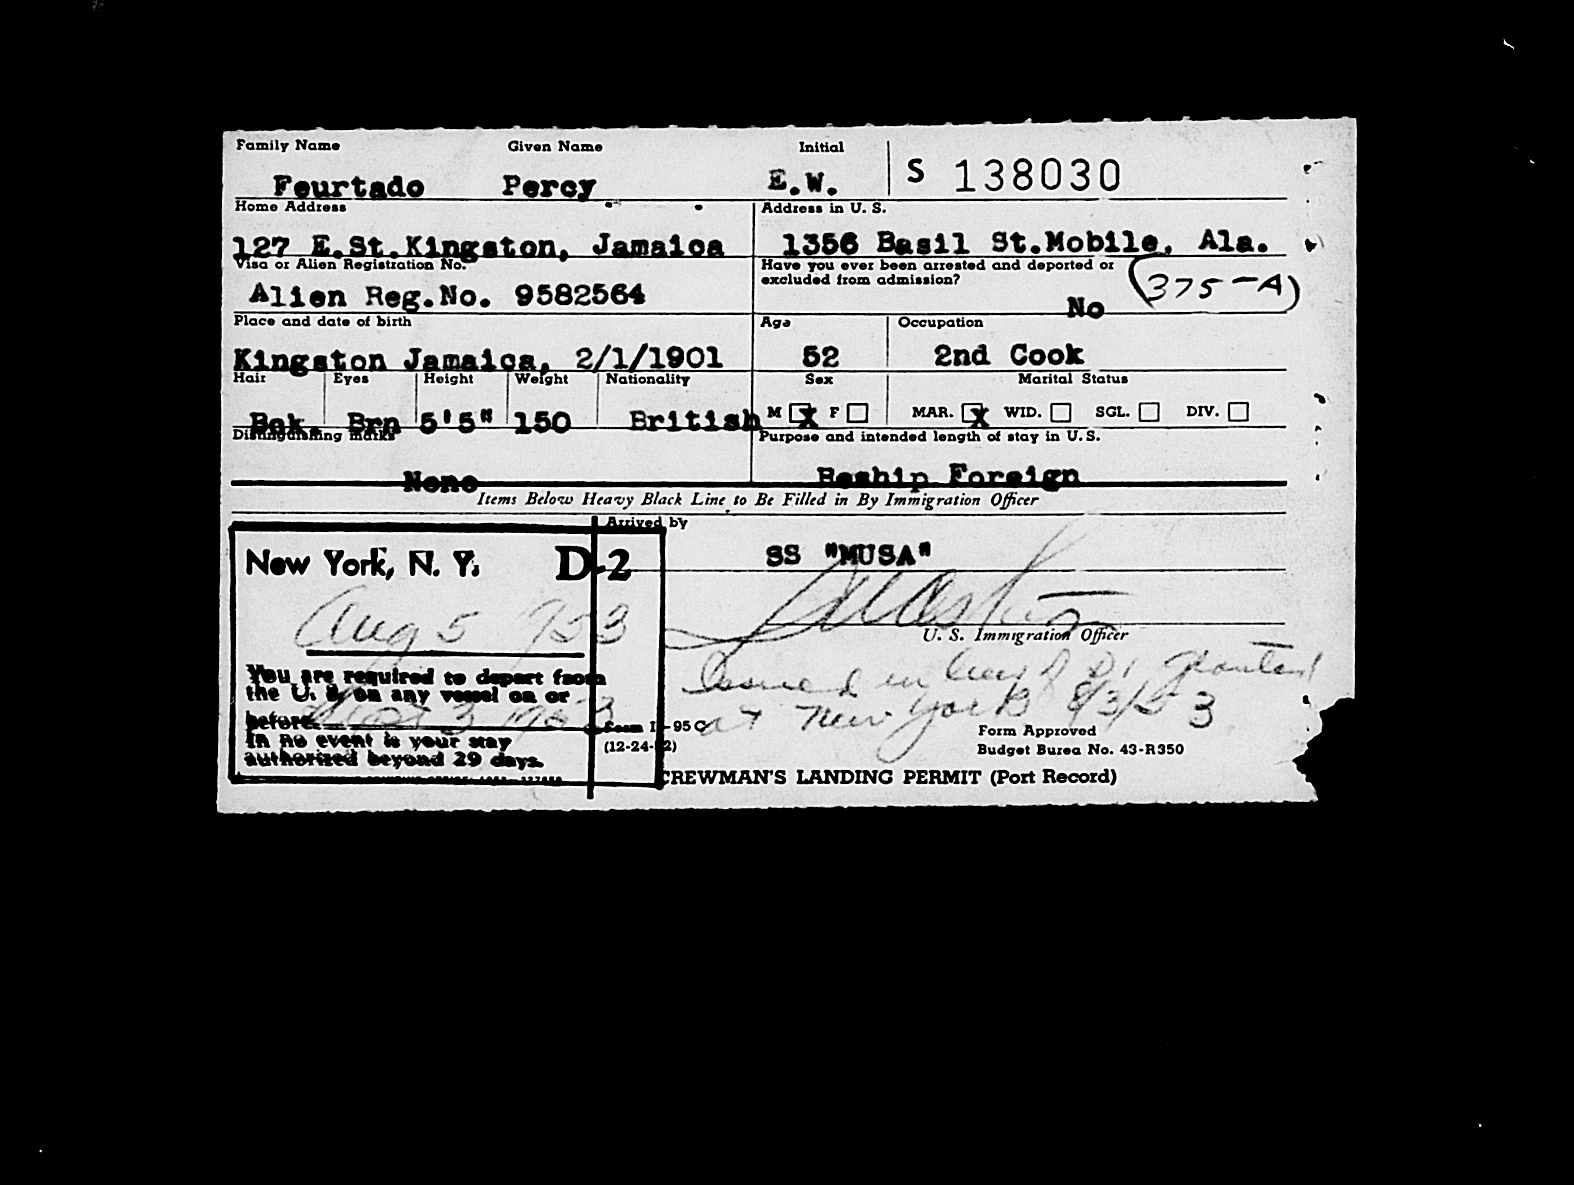 Family Name Given Name Initial
Feurtado Percy E.W. S 138030
Home Address Address in U. S.
127 E.St.Kingston, Jamaica 1356 Basil St.Mobile, Ala.
Visa or Alien Registration No. Have you ever been arrested and deported or
excluded from admission?
Alien Reg.No. 9582564 No (375-A)
Place and date of birth Age Occupation
Kingston Jamaica, 2/1/1901 52 2nd Cook
Hair Eyes Height Weight Nationality Sex Marital Status
Bek. Brn 5'5" 150 British M X F MAR. X WID. SGL. DIV.
Distinguishing marks Purpose and intended length of stay in U.S.
None Reship Foreign
Items Below Heavy Black Line to Be Filled in By Immigration Officer
Arrived by
New York, N. Y. D-2 SS "MUSA"
Aug 5 1953
U. S. Immigration Officer
You are required to depart from
the U. S. on any vessel on or
before 3 1953
In no event is your stay
authorized beyond 29 days.
Issued in lieu of D1 granted
at New York 8/3/53
Form I-95 C
(12-24-52)
Form Approved
Budget Burea No. 43-R350
CREWMAN'S LANDING PERMIT (Port Record)